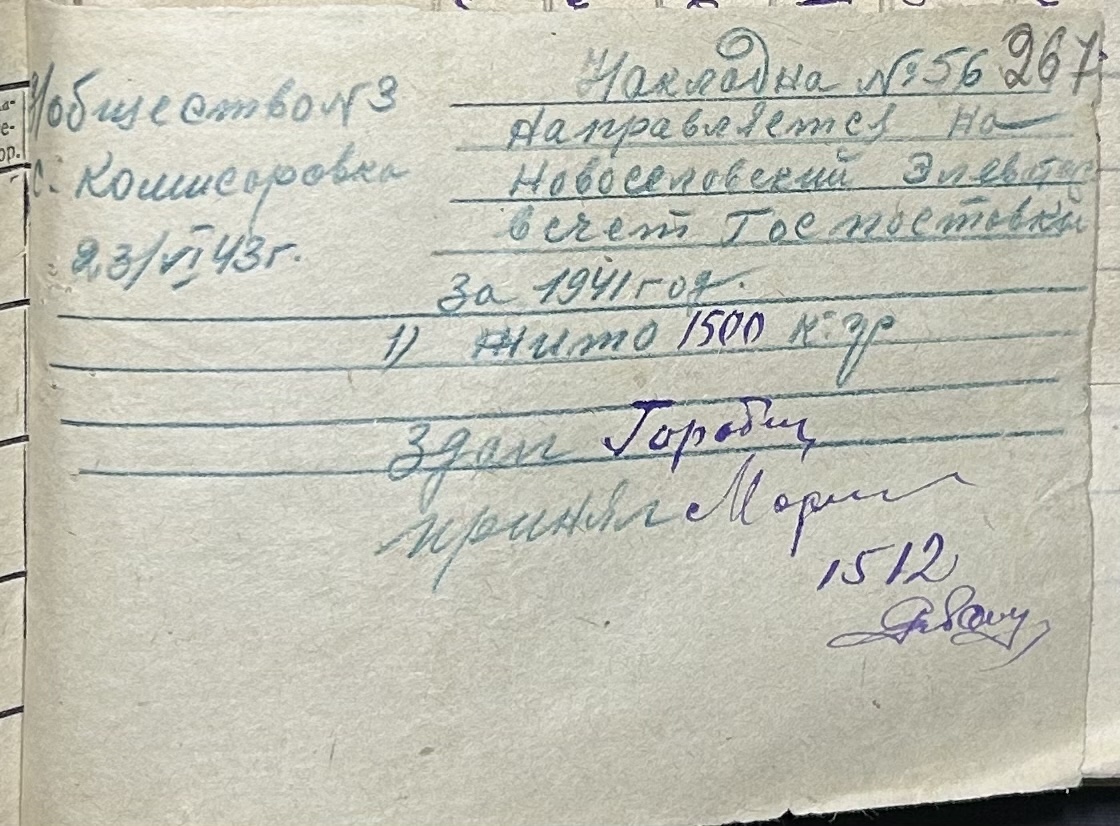 общество N 3
с. Комисаровка
23/VI 43г.
Накладна № 56 267
Направляется на
Новоселовский Элеватор
всчет Госпоставки
за 1941 год.
1) Жито 1500 к:гр
Здал Горобец
принял
1512